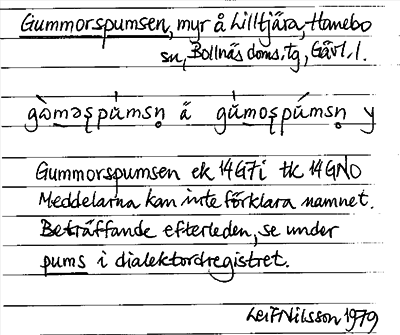 Gummorspumsen, myr å Lilltjära, Hanebo
sn, Bollnäs doms. tg, Gävl. l.
gù̀məʂpùmsn̥ ä gŭmoʂpúmsn̥ y
Gummorspumsen ek 14G7i tk 14GNO
Meddelarna kan inte förklara namnet.
Beträffande efterleden, se under
pums i dialektordregistret.
Leif Nilsson 1979